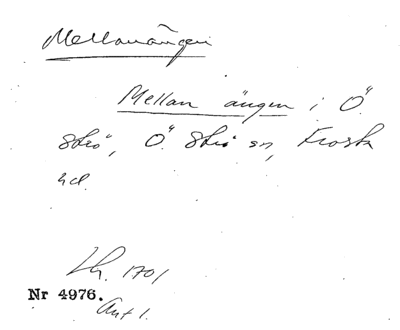 Mellanängen
Mellan ängen i Ö.
Strö, Ö. Strö sn, Frosta
hd.
Lh. 1701
Nr 4976.
Akt 1.